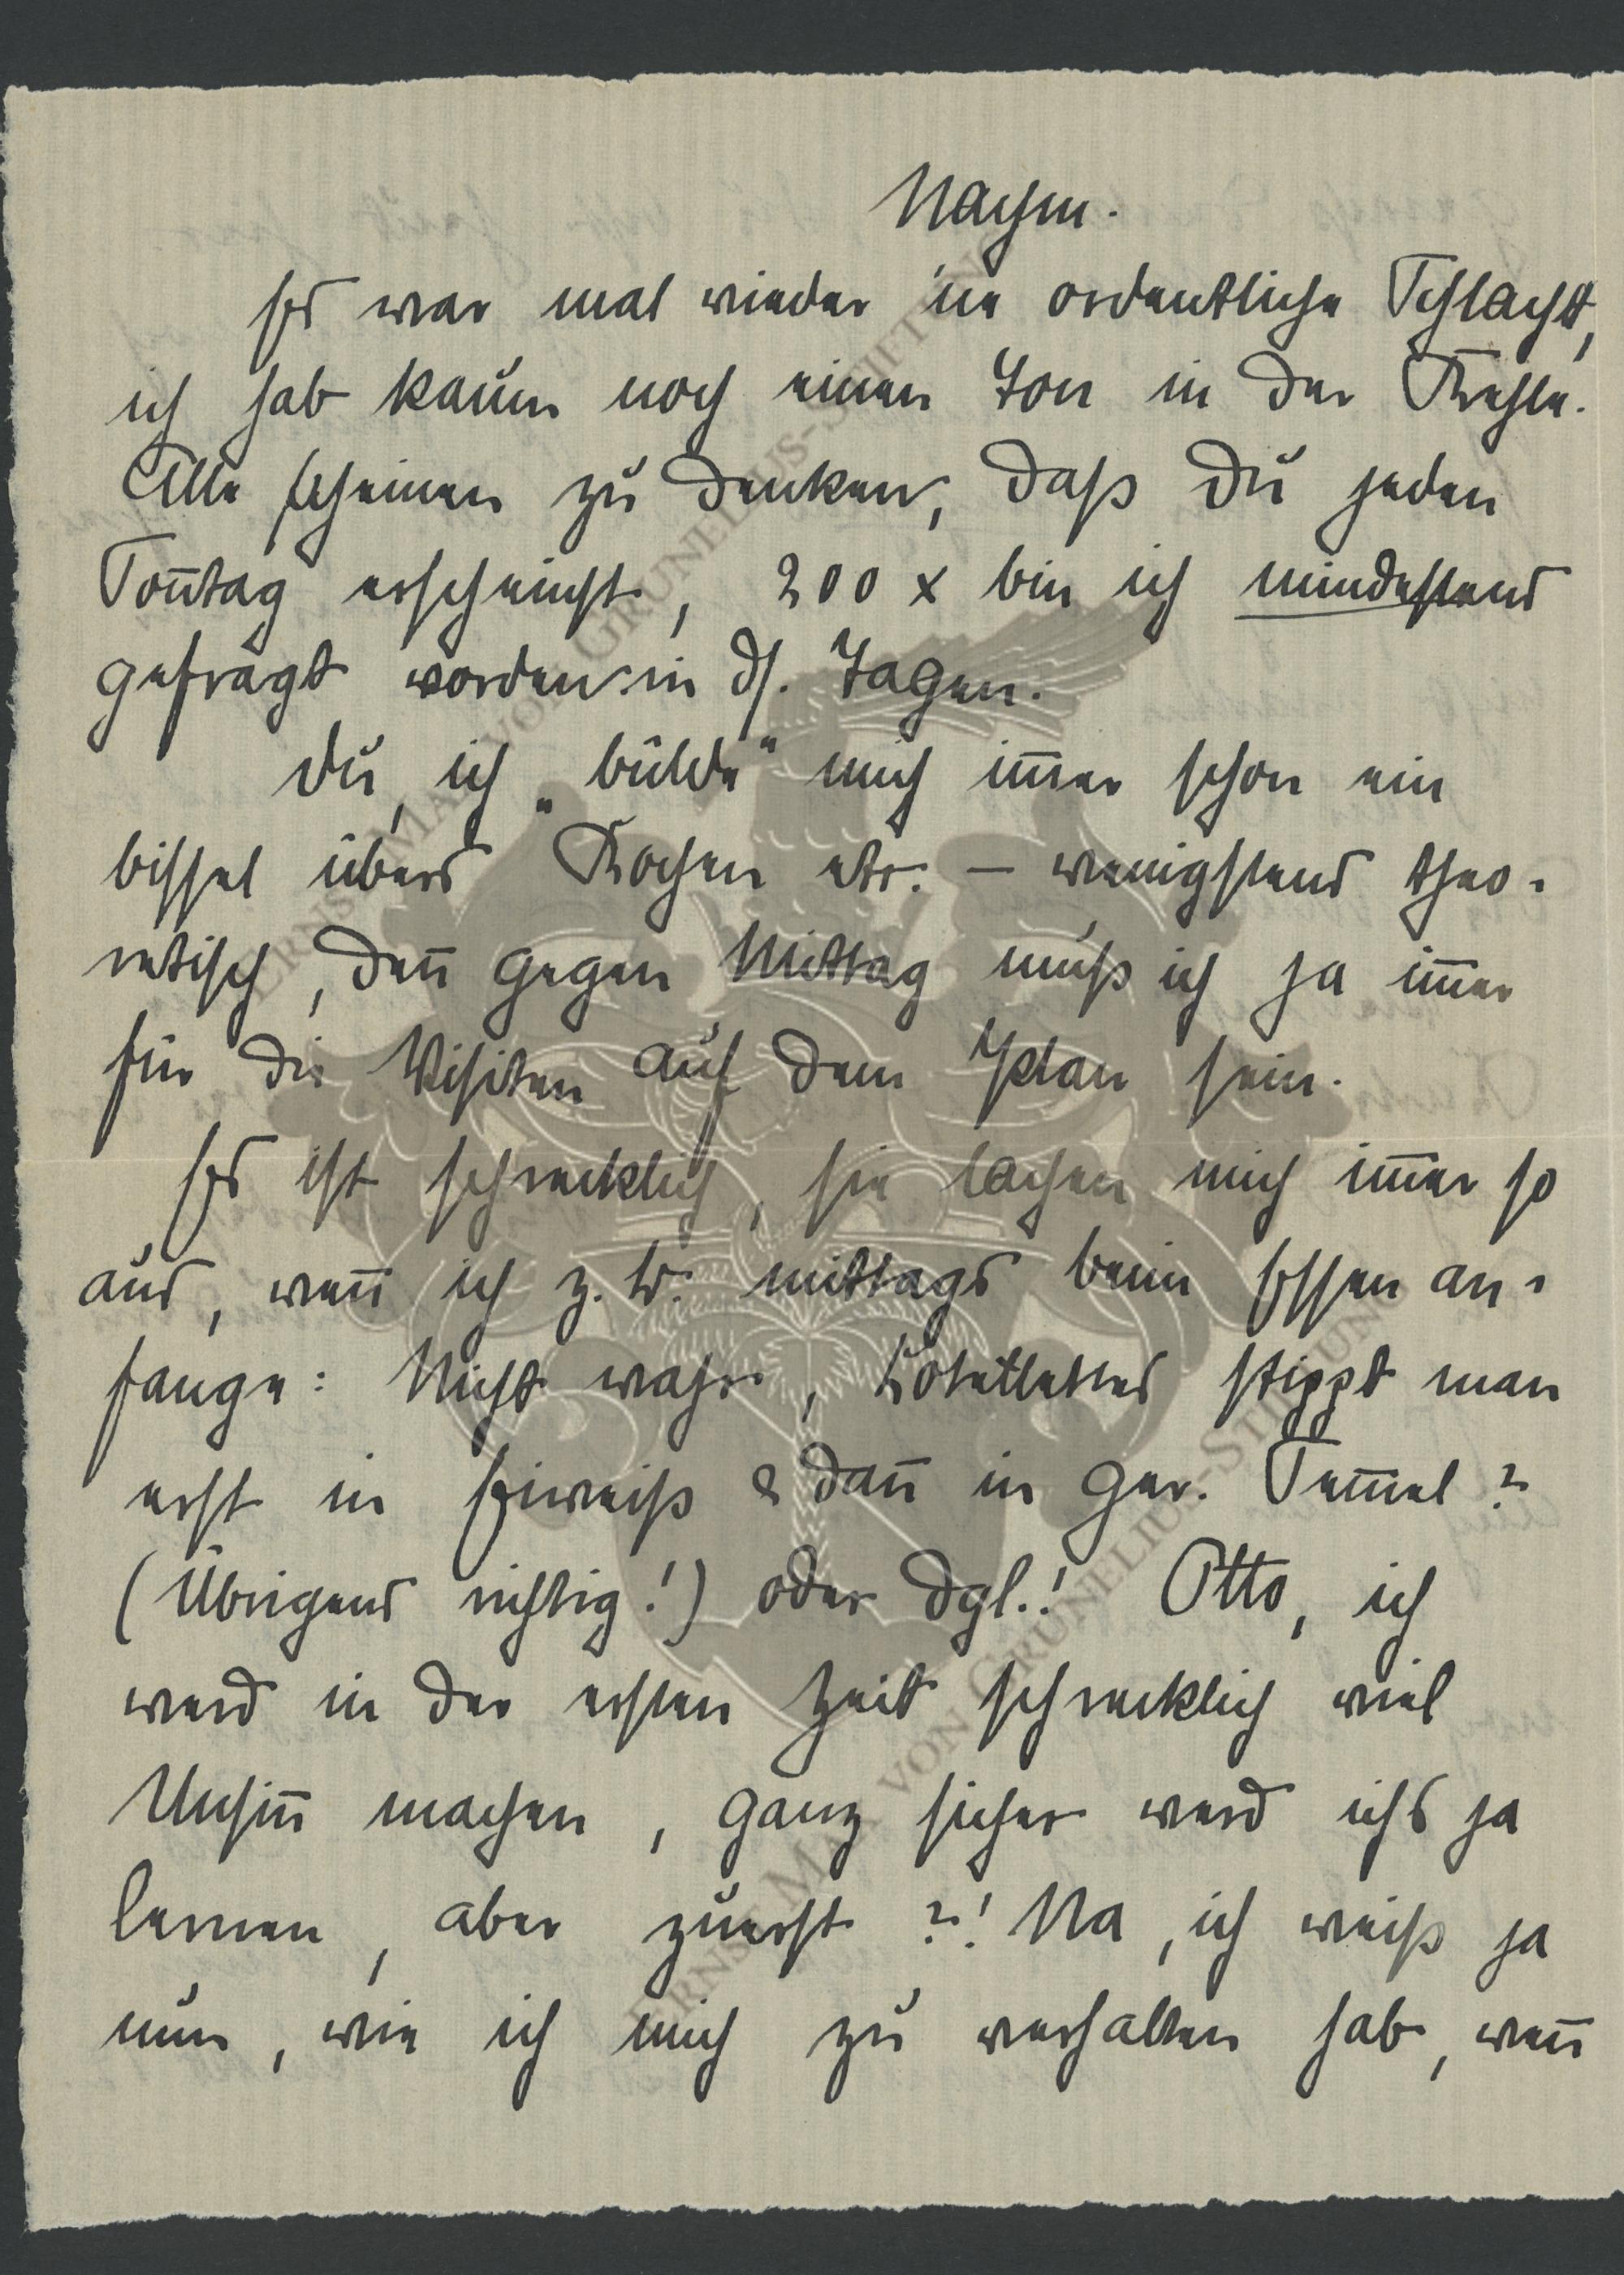 Nachm.
Es war mal wieder 'ne ordentliche Schlacht,
ich hab kaum noch einen Ton in der Kehle.
Alle scheinen zu denken, daß Du jeden
Soñtag erscheinst, 200 x bin ich mindestens
gefragt worden in ds. Tagen.
Du, ich „bülde" mich im̃er schon ein
bissel übers Kochen etc. – wenigstens theo-
retisch, deñ gegen Mittag muß ich ja im̃er
für die Visiten auf dem Plan sein.
Es ist schrecklich, sie lachen mich im̃er so
aus, weñ ich z. B. mittags beim Essen an-
fange: Nicht wahr, Cotelettes stippt man
erst in Eiweiß & dañ in ger. Sem̃el?
(Übrigens richtig!) oder dgl.! Otto, ich
werd in der ersten Zeit schrecklich viel
Unsiñ machen, ganz sicher werd ichs ja
lernen, aber zuerst?! Na, ich weiß ja
nun, wie ich mich zu verhalten hab, weñ
ERNST MAX VON GRUNELIUS-STIFTUNG
ERNST MAX VON GRUNELIUS-STIFTUNG